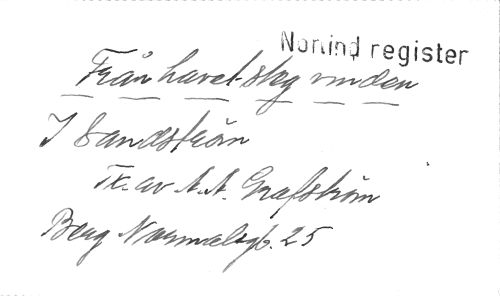 Nonind register
Från havet steg vinden
I Sandström
Tx. av A. A. Grafström
Berg Normalsgb. 25